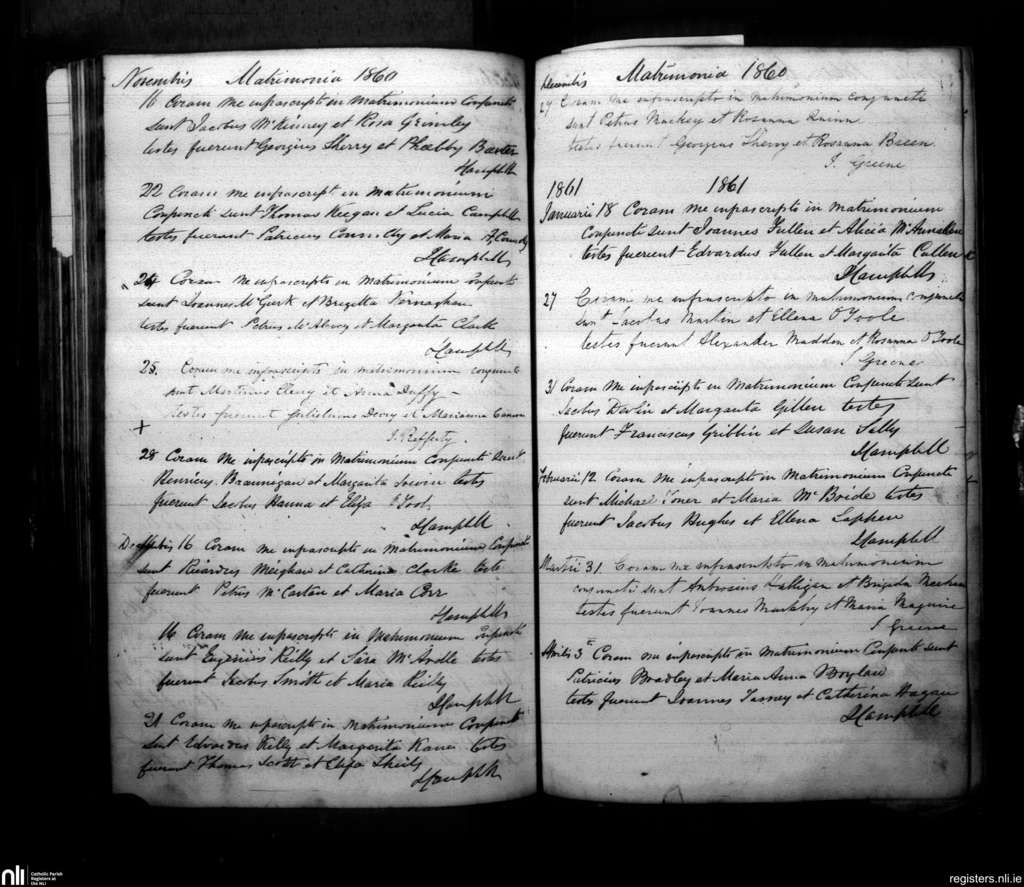 Novembris Matrimonia 1860
16 Coram me infrascripto in Matrimonium Conjuncti
sunt Jacobus McKinney et Rosa Grimley
testes fuerunt Georgius Sherry et Phœbby Baxter
JCampbell
22 Coram me infrascript in Matrimonium
Conjuncti sunt Thomas Keegan et Lucia Campbell
testes fuerunt Patricius Connolly et Maria
JCampbell
24 Coram me infrascripto in Matrimonium Conjuncti
sunt Joannes McGurk et Brigetta Kernaghan
testes fuerunt Petrus McAlevey et Margarita Clark
JCampbell
25. Coram me infrascripto in matrimonium conjuncti
sunt Martinus Clery et Anna Duffy
testes fuerunt Gulielmus Deary et Marianna
J. Rafferty.
28 Coram me infrascripto in Matrimonium Conjuncti sunt
Henricus Brannegan et Margarita testes
fuerunt Jacobus Hanna et Eliza
JCampbell
Decembris 16 Coram me infrascripto in Matrimonium Conjuncti
sunt Ricardus Meighan et Catherina Clarke teste
fuerunt Petrus McCartan et Maria Orr
JCampbell
16 Coram me infrascripto in Matrimonium Conjuncti
sunt Eugenius Reilly et Sara McArdle testes
fuerunt Jacobus Smith et Maria Reilly
JCampbell
21 Coram me infrascripto in Matrimonium Conjuncti
sunt Edvardus Kelly et Margarita Kane testes
fuerunt Thomas Scott et Eliza Sheils
JCampbell
Decembris Matrimonia 1860
27 Coram me infrascripto in matrimonium conjuncti
sunt Petrus Mackey et Rosanna Quinn
testes fuerunt Georgius Sherry et Rosanna Breen
J. Greene
1861 1861
Januarii 18 Coram me infrascripto in Matrimonium
Conjuncti sunt Joannes Fullen et Alicia
testes fuerunt Edvardus Fullen et Margarita Cullen
JCampbell
27 Coram me infrascripto in matrimonium conjuncti
sunt Jacobus Martin et Ellena O'Toole
testes fuerunt Alexander Maddon et Rosanna O'Toole
J Greene
31 Coram me infrascripto in Matrimonium Conjuncti sunt
Jacobus Devlin et Margarita Gillen testes
fuerunt Franciscus Gribbin et Susan
JCampbell
Februarii 12 Coram me infrascripto in Matrimonium Conjuncti
sunt Michael Toner et Maria McBride testes
fuerunt Jacobus Hughes et Ellena
JCampbell
Martii 31 Coram me infrascripto in matrimonium
conjuncti sunt Ambrosius Halligan et Brigida
testes fuerunt Joannes et Maria Maguire
J Greene
Aprilis 3a Coram me infrascripto in Matrimonium Conjuncti sunt
Patricius Bradley et Maria Anna Boylan
testes fuerunt Joannes Tasney et Catherina Hagan
JCampbell
nli Catholic Parish
Registers at
the NLI
registers.nli.ie